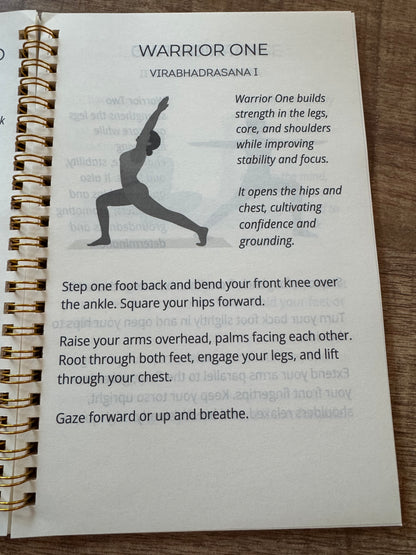 WARRIOR ONE
VIRABHADRASANA I
Warrior One builds
strength in the legs,
core, and shoulders
while improving
stability and focus.
It opens the hips and
chest, cultivating
confidence and
grounding.
Step one foot back and bend your front knee over
the ankle. Square your hips forward.
Raise your arms overhead, palms facing each other.
Root through both feet, engage your legs, and lift
through your chest.
Gaze forward or up and breathe.